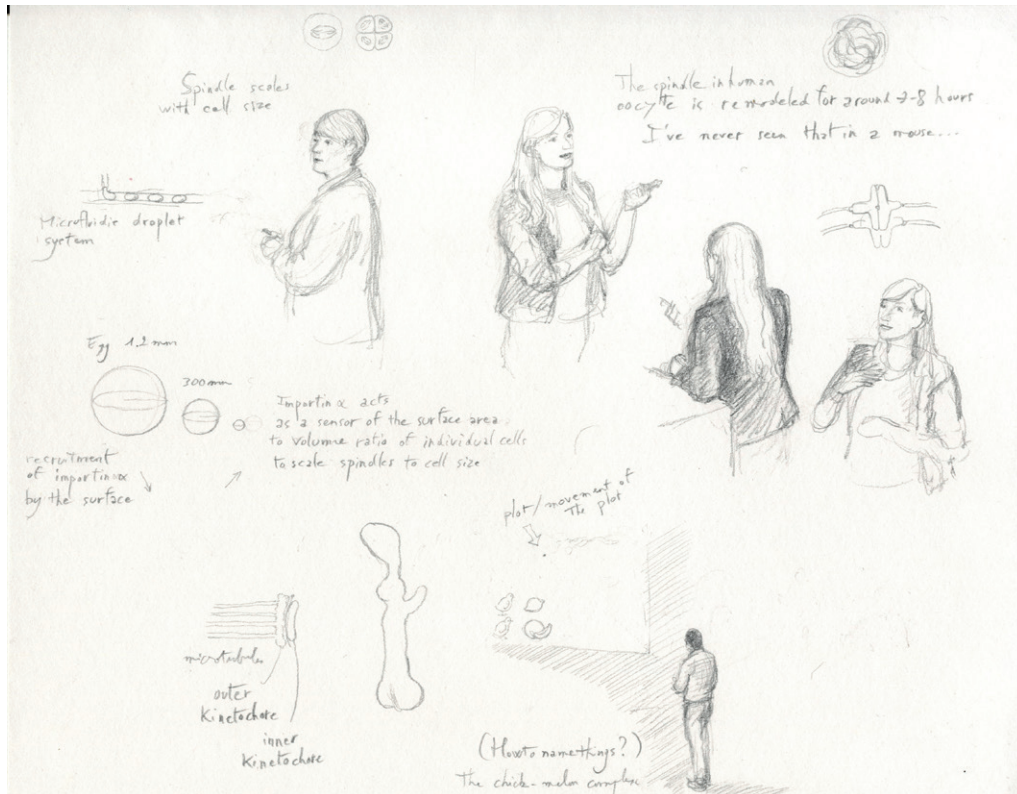 Spindle scales
with cell size
The spindle in human
oocyte is remodeled for around 7-8 hours
I've never seen that in a mouse...
Microfluidic droplet
system
Egg 1.2 mm
300 mm
Importin α acts
as a sensor of the surface area
to volume ratio of individual cells
to scale spindles to cell size
recruitment
of importin α
by the surface
plot/movement of
The plot
microtubules
outer
Kinetochore
inner
Kinetochore
(How to name things?)
The chick-melon complex